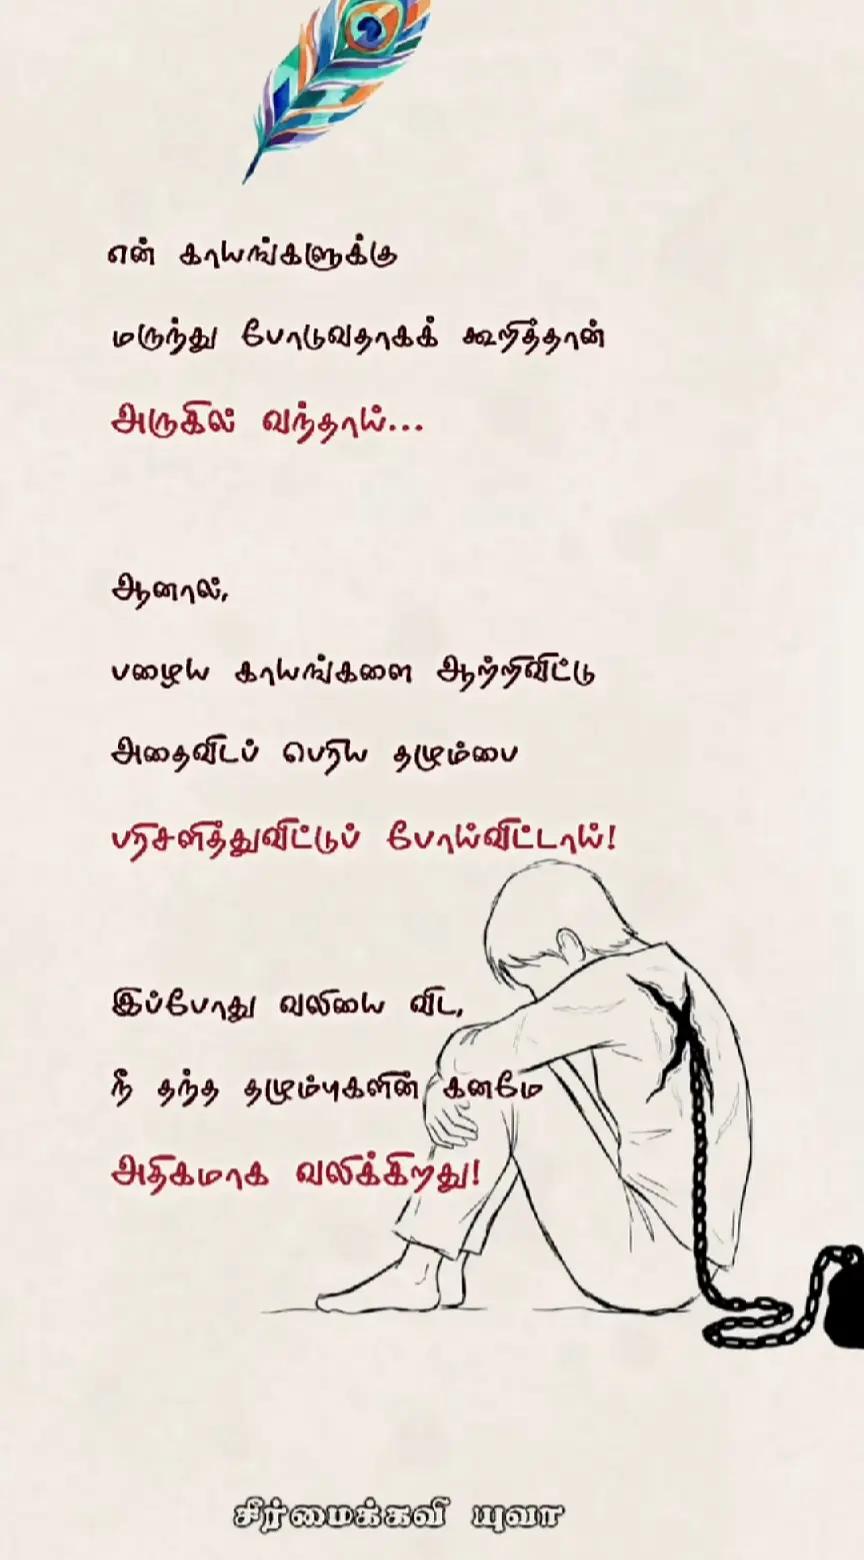 என் காயங்களுக்கு
மருந்து போடுவதாகக் கூறித்தான்
அருகில் வந்தாய்...
ஆனால்,
பழைய காயங்களை ஆற்றிவிட்டு
அதைவிடப் பெரிய தழும்பை
பரிசளித்துவிட்டுப் போய்விட்டாய்!
இப்போது வலியை விட,
நீ தந்த தழும்புகளின் கனமே
அதிகமாக வலிக்கிறது!
சீர்மைக்கவி யுவா